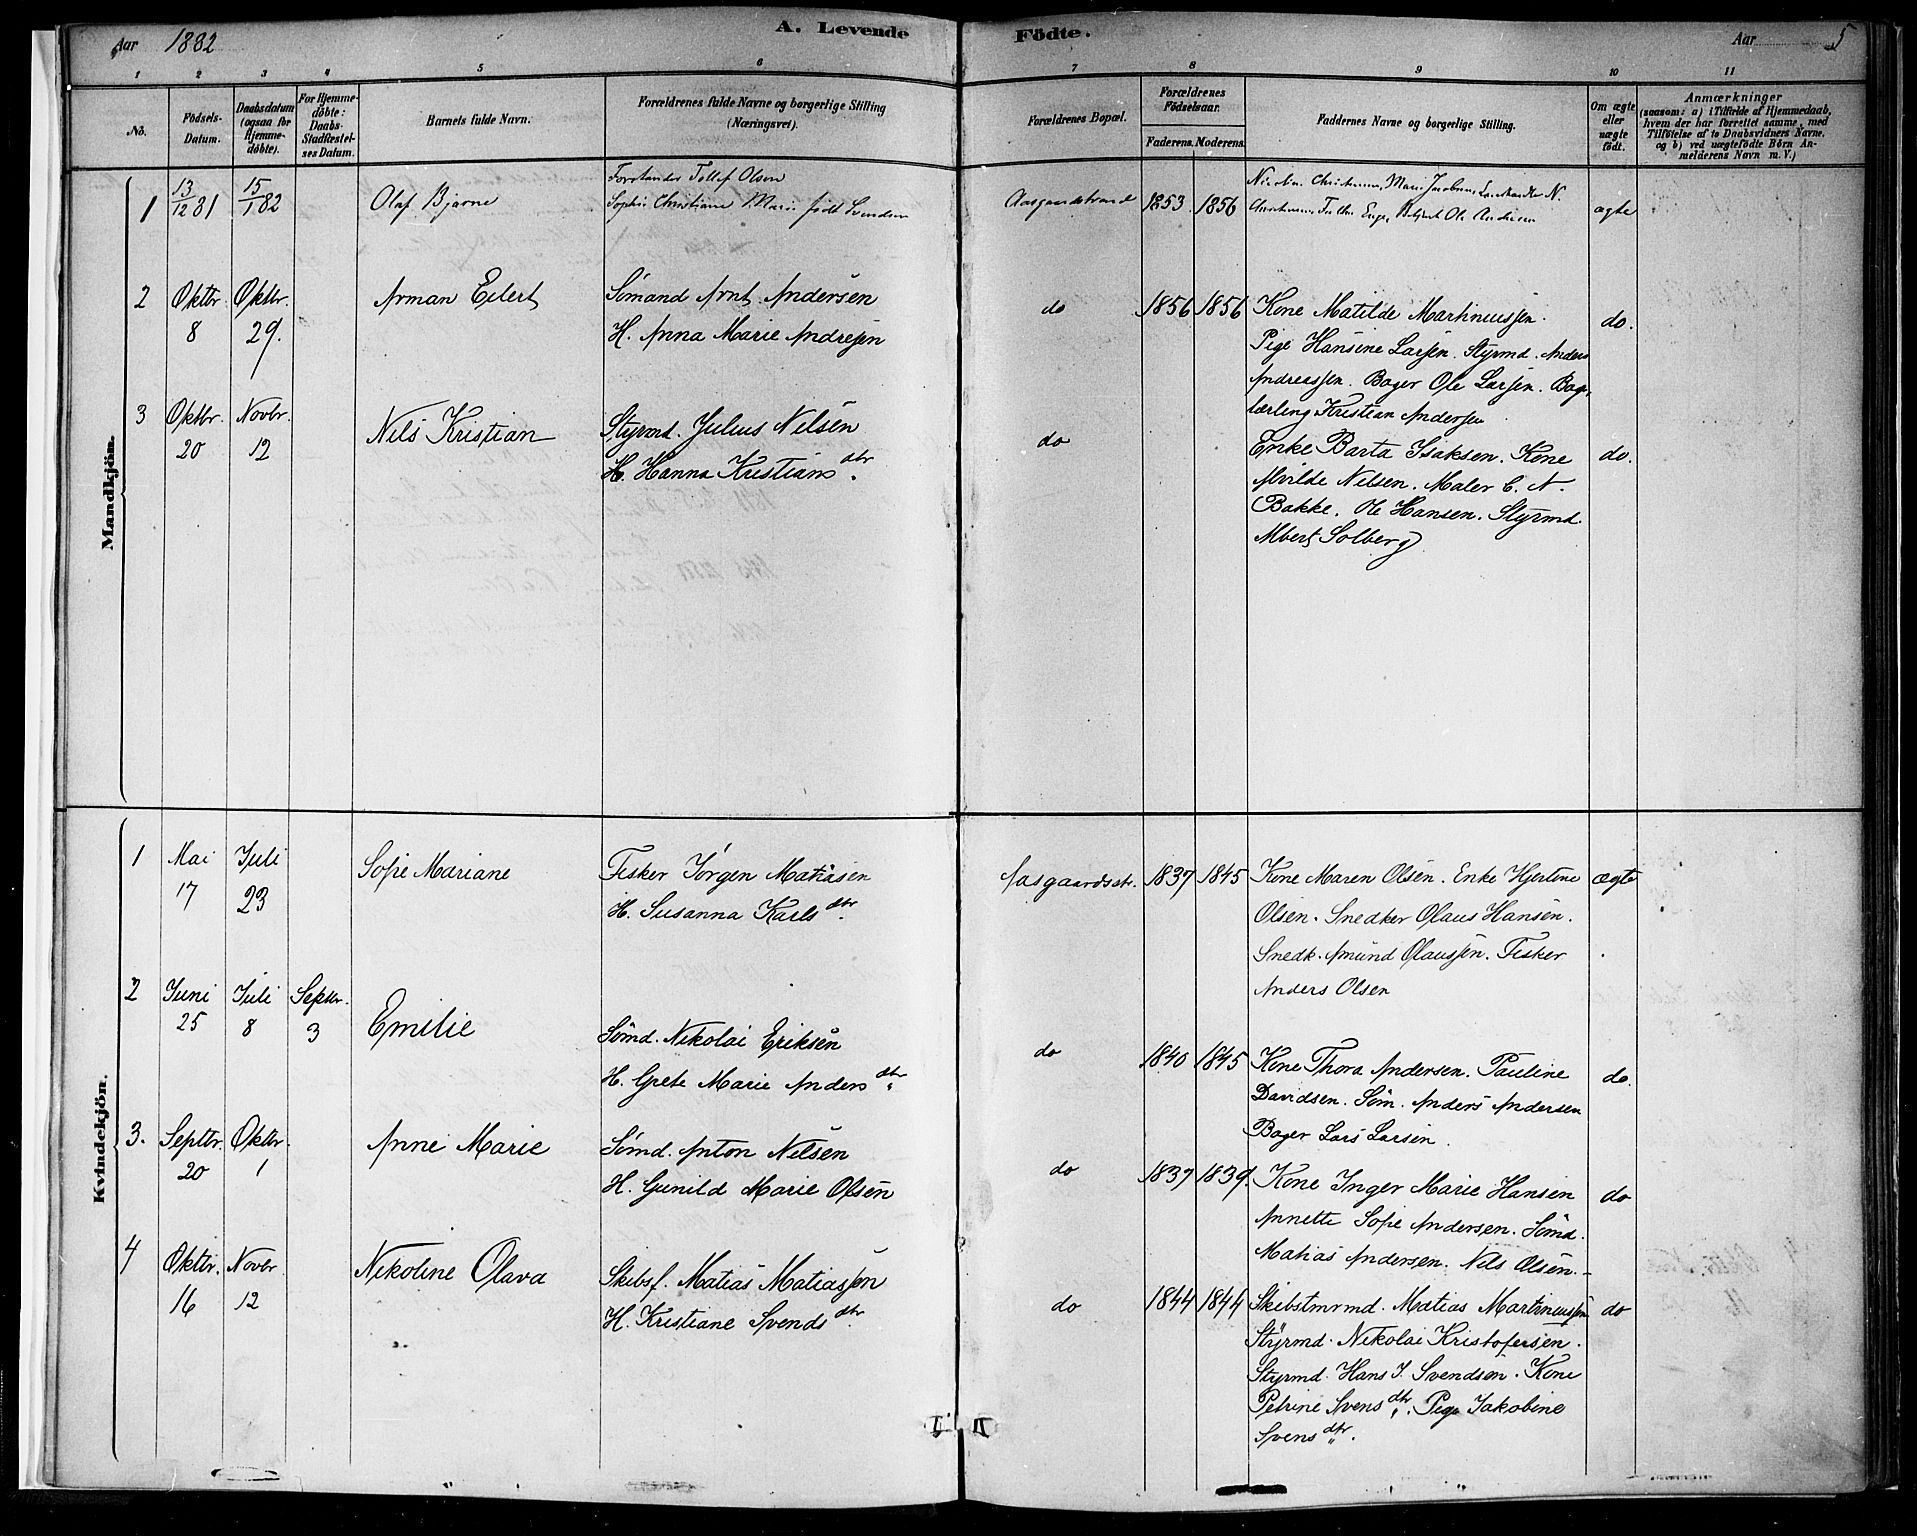 Aar 1882
A. Levende Födte.
Aar 5
1 2 3 4 5 6 7 8 9 10 11
No.
Födsels-Datum.
Daabsdatum (ogsaa for Hjemme-döbte).
For Hjemme-döbte: Daabs-Stadfæstel-ses Datum.
Barnets fulde Navn.
Forældrenes fulde Navne og borgerlige Stilling (Næringsvei).
Forældrenes Bopæl.
Forældrenes Födselsaar.
Faderens. Moderens.
Faddernes Navne og borgerlige Stilling.
Om ægte eller uægte födt.
Anmærkninger
(saasom: a) i Tilfælde af Hjemmedaab,
hvem der har forrettet samme, med
Tilföielse af to Daabsvidners Navne,
og b) ved uægtefödte Börn An-
melderens Navn m. V.)
Mandkjön.
1 13/12 81 15/1 82 Olaf Bjarne
Forstander Tollef Olsen
Sophie Christiane Marie født Svendsen
Aasgaardstrand 1853. 1856
Marie Jacobsen, N.
Ole Andersen
ægte
2 Oktbr. 8 Oktbr. 29.
Arman Eilert
Sømand Arnt Andersen
H. Anna Marie Andresen
do 1856 1856
Kone Matilde Martinussen.
Pige Hansine Larsen. Styrmd. Anders
Andreassen. Bager Ole Larsen. Bag.
lærling Kristian Andersen
do.
3 Oktbr. 20 Novbr. 12
Nils Kristian
Styrmd. Julius Nilsen
H. Hanna Kristians dtr.
do
Enke Barta Isaksen. Kone
Alvilde Nilsen. Maler C. A.
Bakke. Ole Hansen. Styrmd.
Albert Solberg
do.
Kvindekjön.
1 Mai 17 Juli 23
Sofie Mariane
Fisker Jørgen Matiasen
H. Susanna Karls dtr.
Aasgaardsstr. 1837 1845
Kone Maren Olsen. Enke Hjertine
Olsen. Snedker Olaus Hansen.
Snedk. Amund Olaussen. Fisker
Anders Olsen
ægte
2 Juni 25 Juli 8 Septbr. 3
Emilie
Sømd. Nikolai Eriksen
H. Grete Marie Anders dtr.
do 1840 1845
Kone Thora Andersen. Pauline
Davidsen. Søm. Anders Andersen
Bager Lars Larsen.
do.
3. Septbr. 20 Oktbr. 1
Anne Marie
Sømd. Anton Nilsen
H. Gunild Marie Olsen
do 1837 1839.
Kone Inger Marie Hansen
Annette Sofie Andersen. Sømd.
Matias Andersen. Nils Olsen.
do
4 Oktbr. 16 Novbr 12
Nikoline Olava
Skibsf. Matias Matiassen
H. Kristiane Svends dtr.
do 1844 1844
Skibstmrmd. Matias Martinussen
Styrmd. Nikolai Kristofersen.
Styrmd. Hans J. Svendsen. Kone
Petrine Svens dtr. Pige Jakobine
Svens dtr.
do